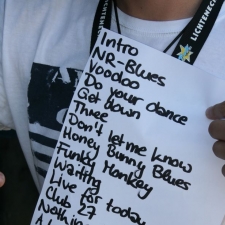 LICHTENEC
Intro
NR-Blues
Voodoo
Do your dance
Get down
Three
Don't let me know
Honey Bunny Blues
Funky Monkey
Waiting
Live for today
Club 27
Nothing